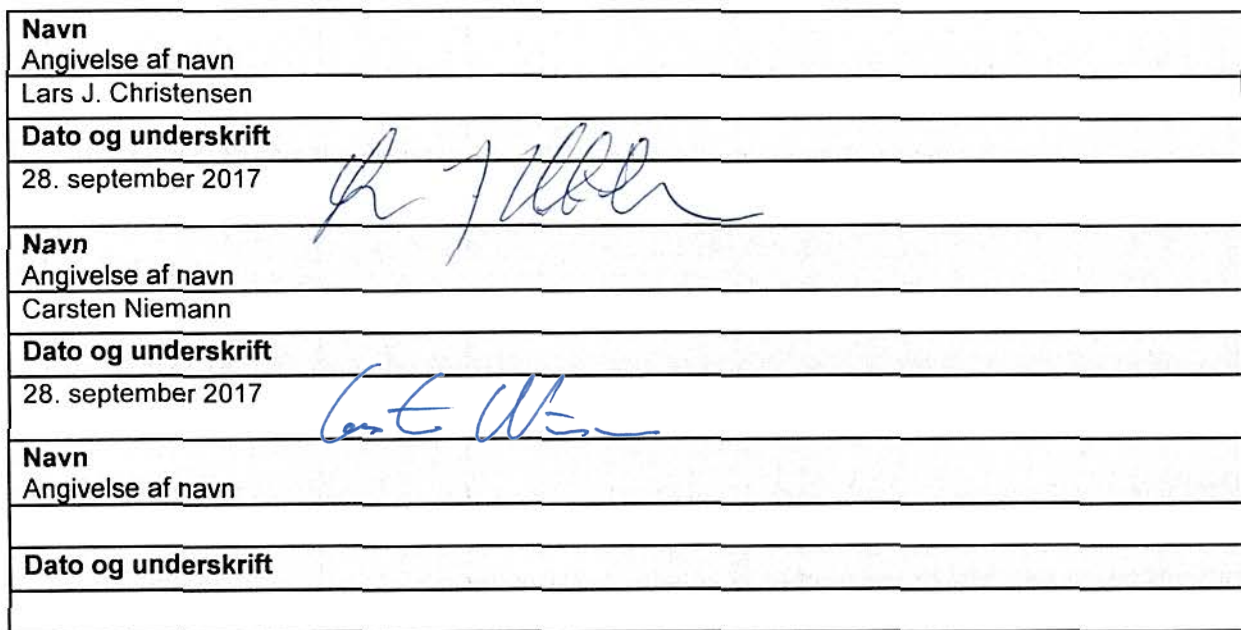 Navn
Angivelse af navn
Lars J. Christensen
Dato og underskrift
28. september 2017
Navn
Angivelse af navn
Carsten Niemann
Dato og underskrift
28. september 2017
Navn
Angivelse af navn
Dato og underskrift